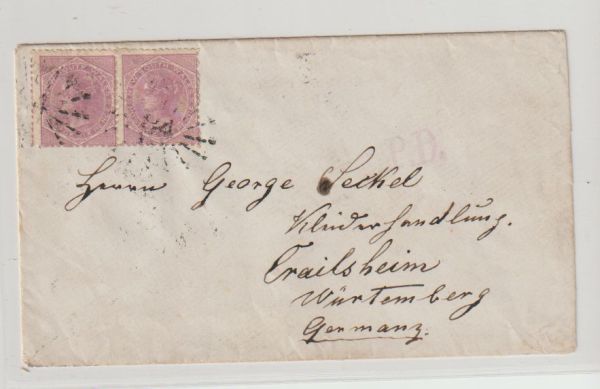 P.D.
Herrn George Seckel
Kleiderhandlung.
Crailsheim
Würtemberg
Germany.